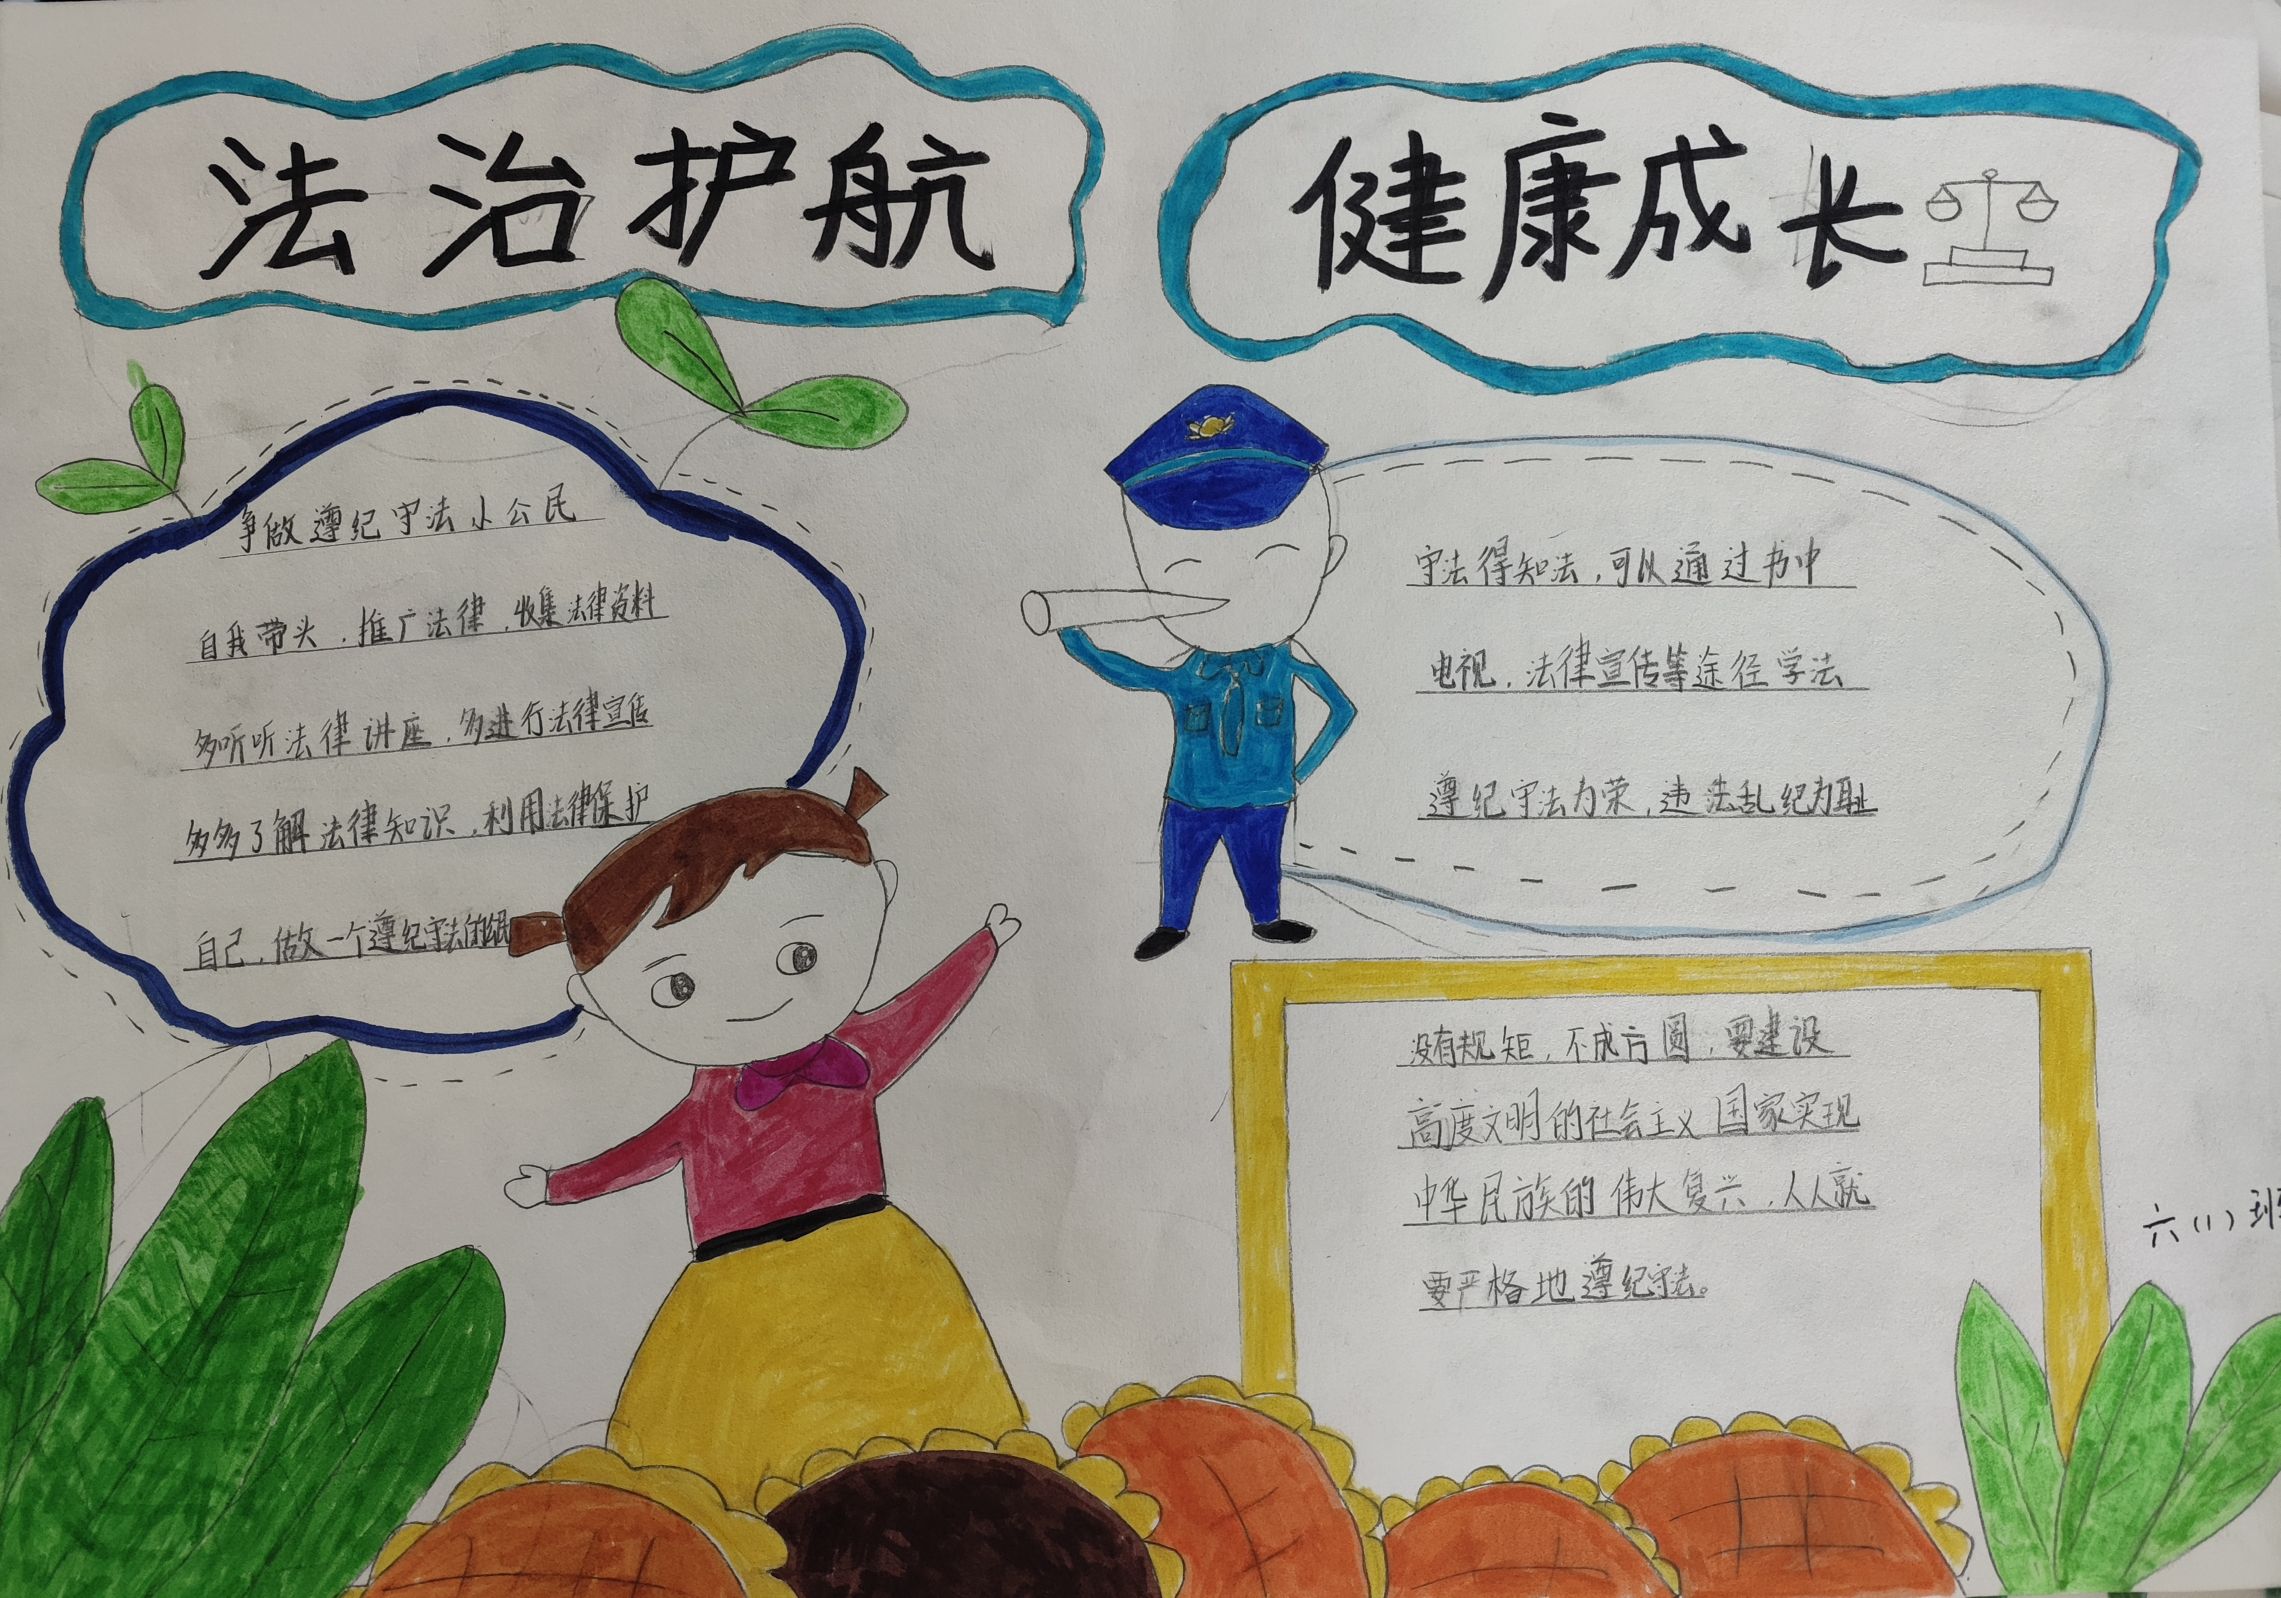 法治护航
健康成长
争做遵纪守法小公民
自我带头，推广法律，收集法律资料
多听听法律讲座，多进行法律宣传
多多了解法律知识，利用法律保护
自己，做一个遵纪守法的公民
守法得知法，可以通过书中
电视，法律宣传等途径学法
遵纪守法为荣，违法乱纪为耻
没有规矩，不成方圆，要建设
高度文明的社会主义国家实现
中华民族的伟大复兴，人人就
要严格地遵纪守法。
六（1）班